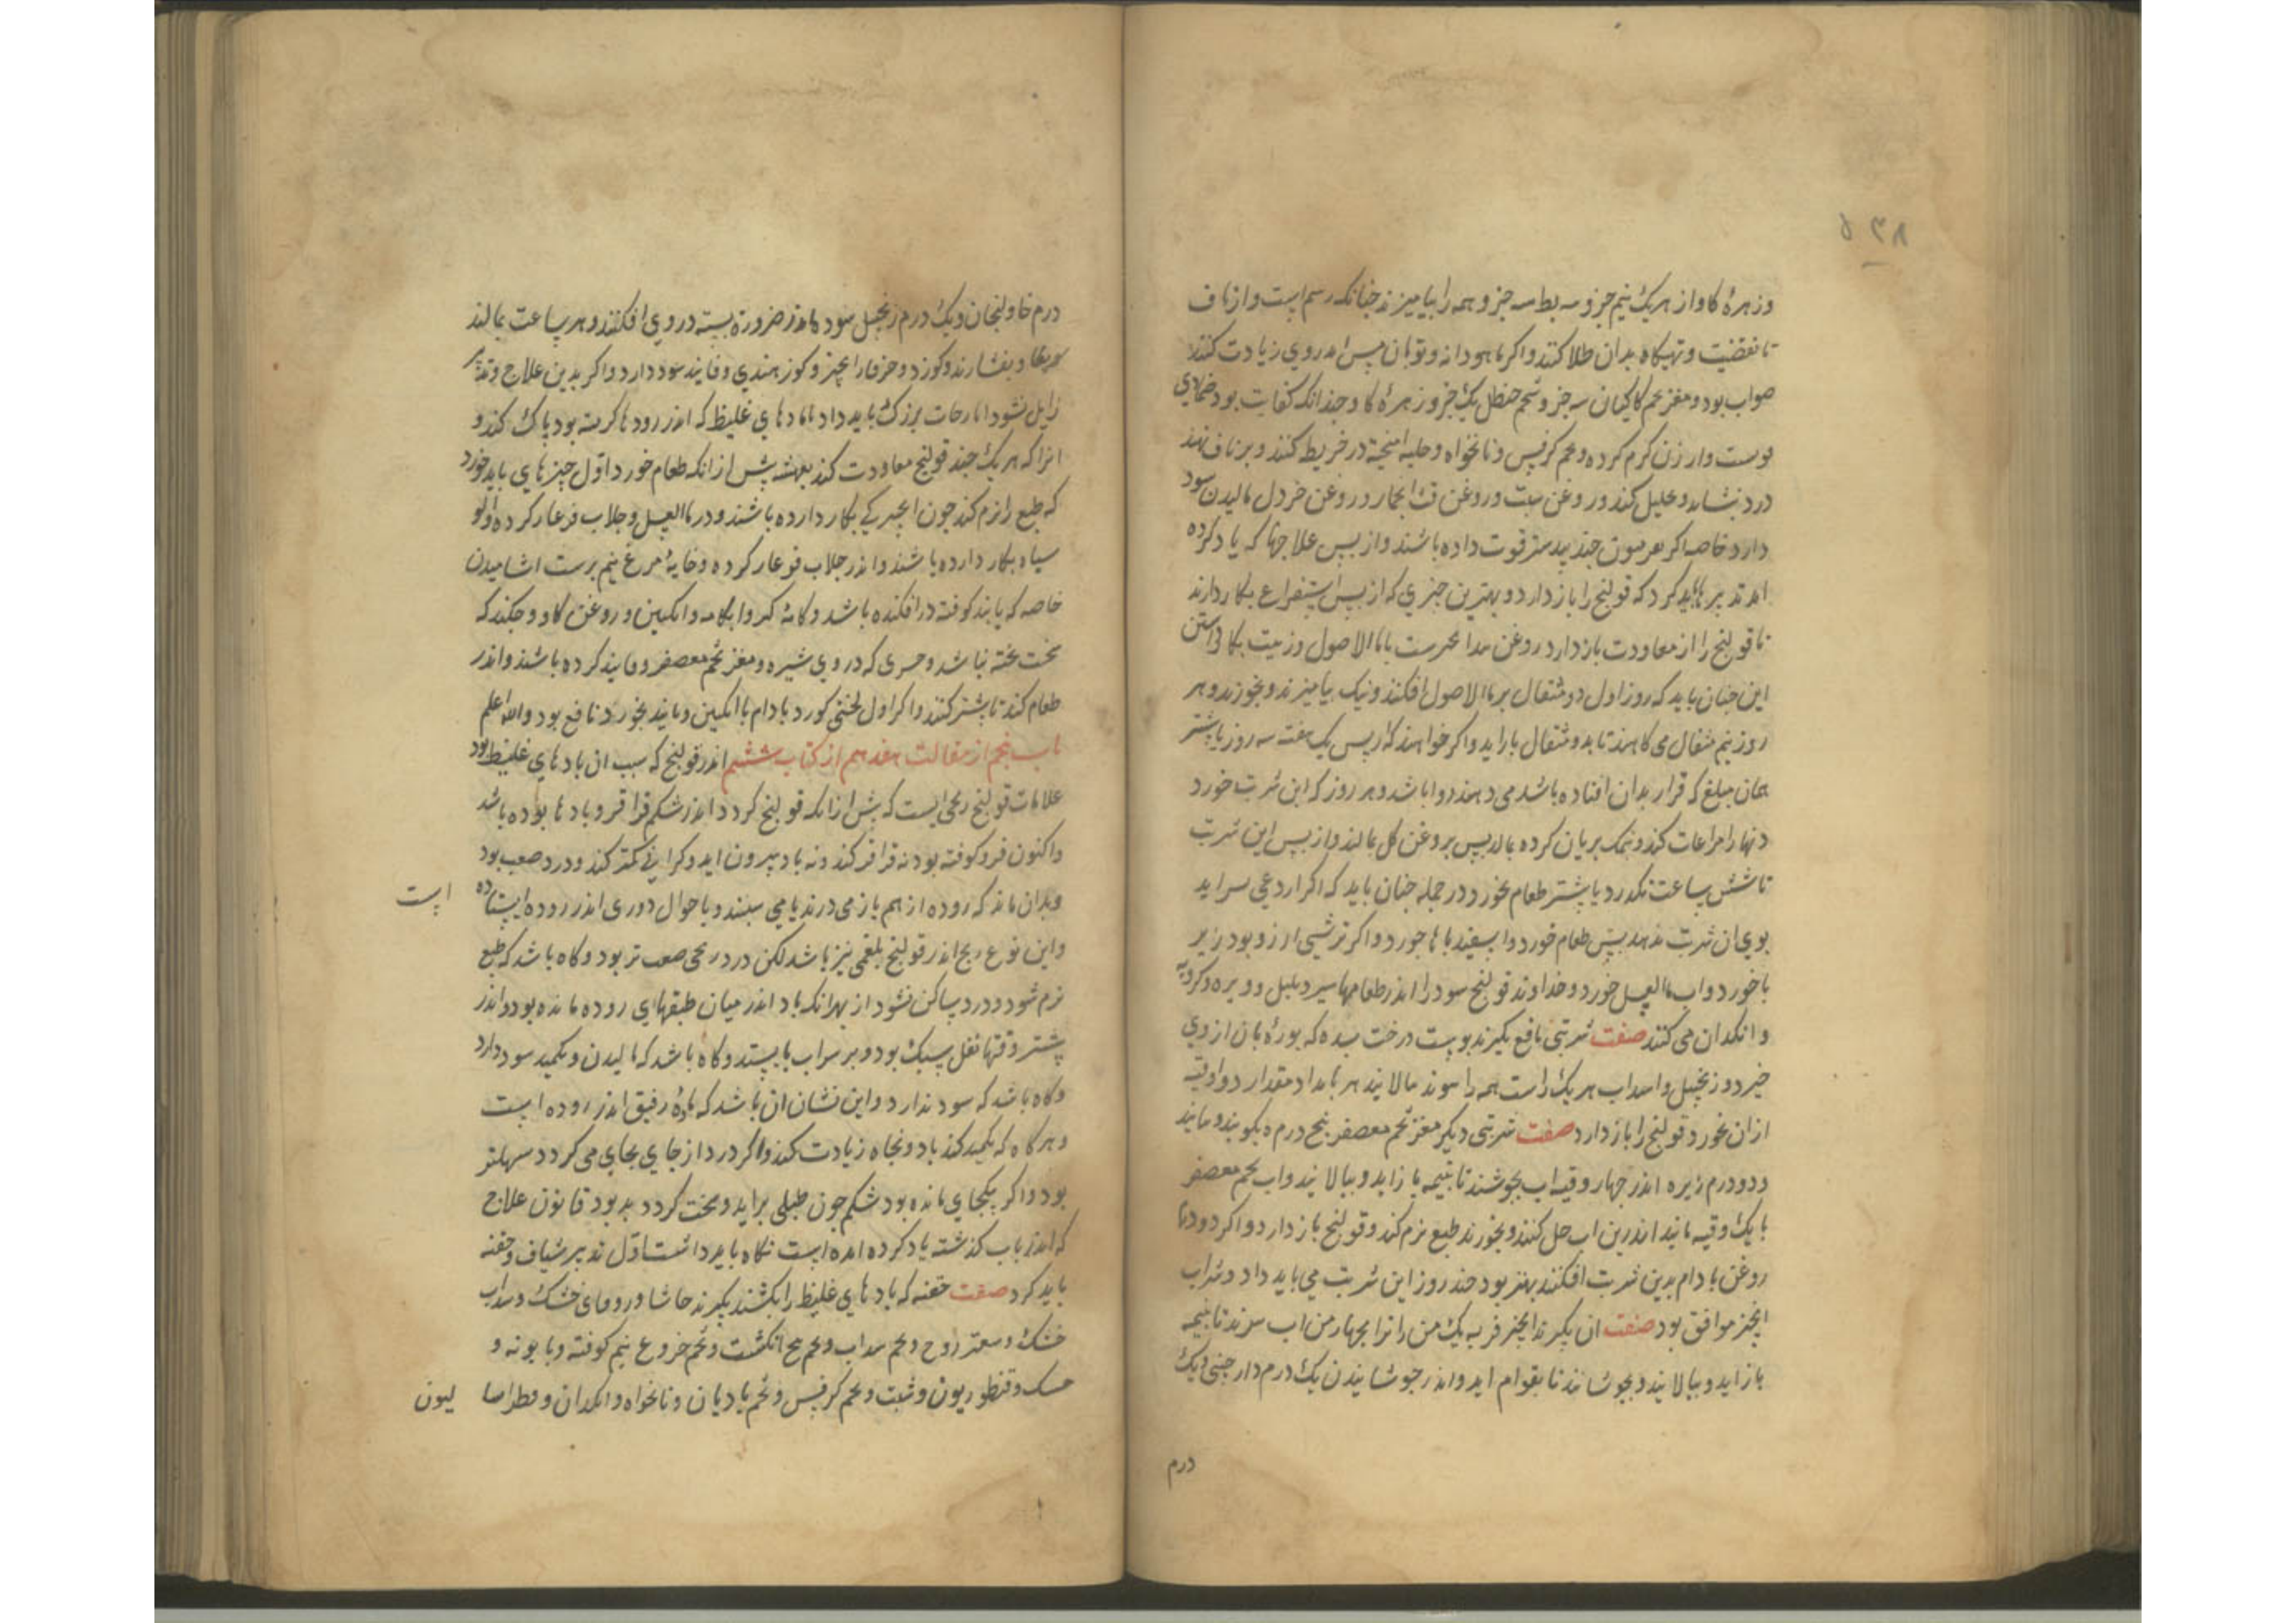 ۵۳۸
وزهرۀ کاو از هر یک نیم جزو سه بط سه جزو همه را بیامیزند جنانکه رسم است و از ناف
تا بقضیت و تهیکاه بدان طلا کنند واکر ماهودانه وتوبان مس اندروی زیادت کنند
صواب بود ومغز تخم کاکیان سه جز و شحم حنظل یک جزو زهرۀ کاو جندانکه کفایت بود
بوست وارزن کرم کرده وتخم کرفس ونانخواه وحلبه امیخته در خریطه کنند و بر ناف نهند
درد بنشاند وتحلیل کند وروغن سبت وروغن قثا الحمار وروغن خردل مالیدن سود
دارد خاصه اکر بفربیون جند بیدستر قوت داده باشند واز بس علاجها که یاد کرده
امد تدبیرها باید کرد که قولنج را باز دارد و بهترین جیزی که از بس استفراغ بکار دارند
تا قولنج را از معاودت باز دارد روغن بیدانجیرست با ما الاصول وزیت بکار داشتن
این جنان باید که روز اول دو مثقال بر ما الاصول افکنند ونیک بیامیزند وبخورند وهر
روز نیم مثقال می کاهند تا بدو مثقال باز اید واکر خواهند که از بس یک هفته سه روز یا بیشتر
همان مبلغ که قرار بدان افتاده باشد می دهند روا باشد وهر روز که این شربت خورد
دنها را مراعات کند ونمک بریان کرده بمالد بس بروغن کل بمالند واز بس این شربت
تا شش ساعت نکذرد یا بیشتر طعام نخورد ودر جمله جنان باید که اکر اروغی براید
بوی ان شربت ندهد بس طعام خورد واسفیدباها خورد واکر ترشی ارزو بود زیر
با خورد واب ما العسل خورد وخداوند قولنج سود را اندر طعامها سیر وبلبل وزیره وکرویه
وانکدان می کنند صفت شربتی نافع بکیرند بوست درخت سده که بورۀ بان از وی
خیزد وزنجبیل واسداب هر یک راست همه را بپزند وبالایند هر بامداد مقدار دو اوقیه
ازان بخورد قولنج را باز دارد صفت شربتی دیکر مغز تخم معصفر بنج درم بکوبند وفانید
ودو درم زیره اندر جهار وقیه اب بجوشند تا بنیمه باز اید وبپالایند واب تخم معصفر
با یک وقیه فانید اندرین اب حل کنند وبخورند طبع نرم کند وقولنج باز دارد واکر دو درم
روغن بادام بدین شربت افکنند بهتر بود جند روز این شربت می باید داد وشراب
انجیر موافق بود صفت ان بکیرند انجیر فربه یک من و انرا بجهار من اب ببزند تا بنیمه
باز اید وببالایند وبجوشانند تا بقوام اید واندر جوشانیدن یک درم دارجینی ویک
درم
درم خاولنجان ویک درم زنجبیل سوده اندر ضرورة بسته در وی افکنند و هر ساعت بمالند
وبفشارند وکوزد وحزفار انجیر وکوز هندی وفانید سود دارد واکر بدین علاج وتدبیر
زایل نشود ایارجات بزرک باید داد تا مادهای غلیظ که اندر رودها کرمته بود باک کند و
انرا که هر یک جند قولنج معاودت کند بعشه بش ازانکه طعام خورد اوّل جیزهایی باید خورد
که طبع را نرم کند جون انجیر کی بکار دارده باشند ودر ما العسل وجلاب فرغار کرده والو
سیاه بکار دارده باشند واندر جلاب فرغار کرده وخایۀ مرغ نیم برست اشامیدن
خاصه که یا بند کوفته در افکنده باشد وکامۀ کبر وابکامه وانکبین وروغن کاو وجکندکه
سخت بخته نباشد وحسوی که در وی شیره ومغز تخم معصفر وفانید کرده باشند واندر
طعام کند تا بیشتر کنند واکر اول لختی کورد بادام با انکبین وفانید بخورد نافع بود والله اعلم
باب بنجم از مقالت هفدهم از کتاب ششم اندر قولنج که سبب ان بادهای غلیظ بود
علامات قولنج ریحی ایست که بیش ازانکه قولنج کردد اندر شکم قراقر وبادها بوده باشد
واکنون فرو کوفته بود نه قراقر کند ونه باد بیرون اید وکرانی کمتر کند ودرد صعب بود
وبدان ماند که روده از هم باز می درند یا می سبنند ویا جوال دوزی اندر روده ایستاده
است
واین نوع رنج اندر قولنج بلغمی نیز باشد لکن درد ریحی صعب تر بود وکاه باشد که طبع
نرم شود ودرد ساکن نشود از بهر انک باد اندر میان طبقهای روده مانده بود واندر
بیشتر وقتها ثفل سبک بود وبر سر اب بایستد وکاه باشد که مالیدن وتکمید سود دارد
وکاه باشد که سود ندارد واین نشان ان باشد که مادۀ رفیق اندر روده است
وهرکاه که تکمید کند باد ونجاه زیادت کند واکر درد از جای بجای می کردد سهلتر
بود واکر یکجای مانده بود شکم جون طبلی براید وسخت کردد بد بود قانون علاج
که اندر باب کذشته یاد کرده امده است نکاه باید داشت اوّل تدبیر شیاف وحقنه
باید کرد صفت حقنه که بادهای غلیظ را بکشند بکیرند حاشا وزوفای خشک وسداب
خشک وسعتر وج وتخم سداب وتخم بنج انکشت وتخم خروع نیم کوفته وبابونه و
حسک وقنطوریون وشبت وتخم کرفس وتخم بادیان ونانخواه وانکدان وفطراسا
لیون